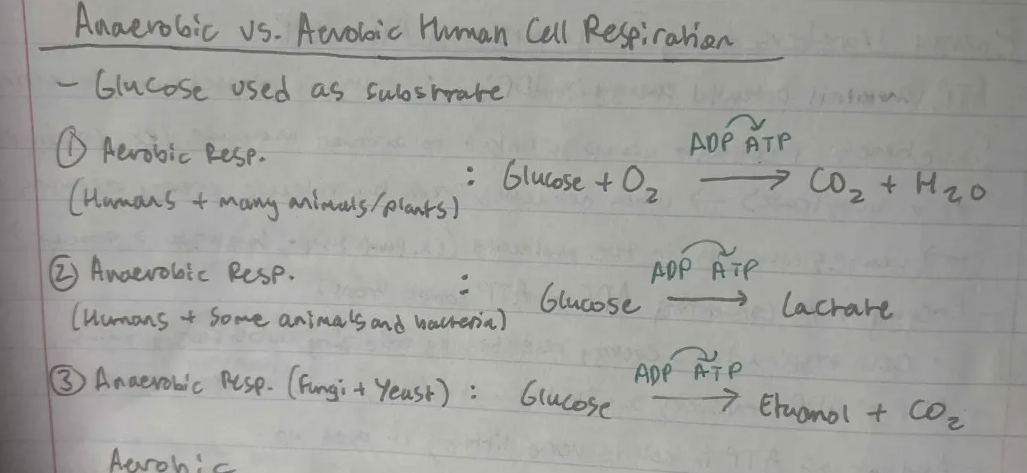 Anaerobic vs. Aerobic Human Cell Respiration
- Glucose used as substrate
① Aerobic Resp.
(Humans + many animals/plants)
: Glucose + O₂ ⟶ CO₂ + H₂O
ADP ATP
② Anaerobic Resp.
(Humans + some animals and bacteria)
: Glucose ⟶ Lactate
ADP ATP
③ Anaerobic Resp. (Fungi + Yeast) : Glucose ⟶ Ethanol + CO₂
ADP ATP
Aerobic